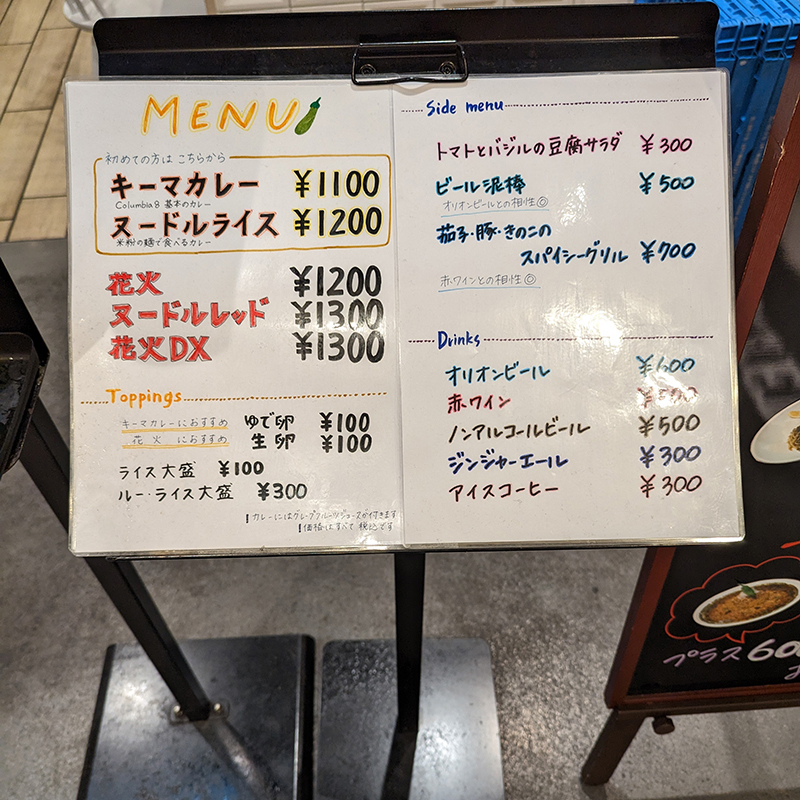 MENU
初めての方は こちらから
キーマカレー ¥1100
Columbia8 基本のカレー
ヌードルライス ¥1200
米粉の麺で食べるカレー
花火 ¥1200
ヌードルレッド ¥1300
花火DX ¥1300
Toppings
キーマカレーにおすすめ ゆで卵 ¥100
花火におすすめ 生卵 ¥100
ライス大盛 ¥100
ルー・ライス大盛 ¥300
!カレーにはグレープフルーツジュースが付きます
!価格はすべて税込です
Side menu
トマトとバジルの豆腐サラダ ¥300
ビール泥棒 ¥500
オリオンビールとの相性◎
茄子・豚・きのこの
スパイシーグリル ¥700
赤ワインとの相性◎
Drinks
オリオンビール ¥600
赤ワイン
ノンアルコールビール ¥500
ジンジャーエール ¥300
アイスコーヒー ¥300
プラス